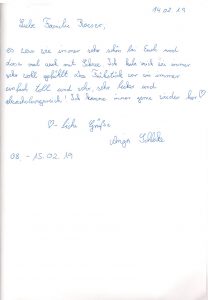 14.02.19
Liebe Familie
es war wie immer sehr schön bei Euch und
dass auch mit Ich habe mich wie immer
sehr wohl gefühlt das Frühstück war wie immer
einfach toll und sehr, sehr lecker und
abwechslungsreich! Ich komme immer gerne wieder her ♡
♡-liche Grüße
08. - 15.02.19